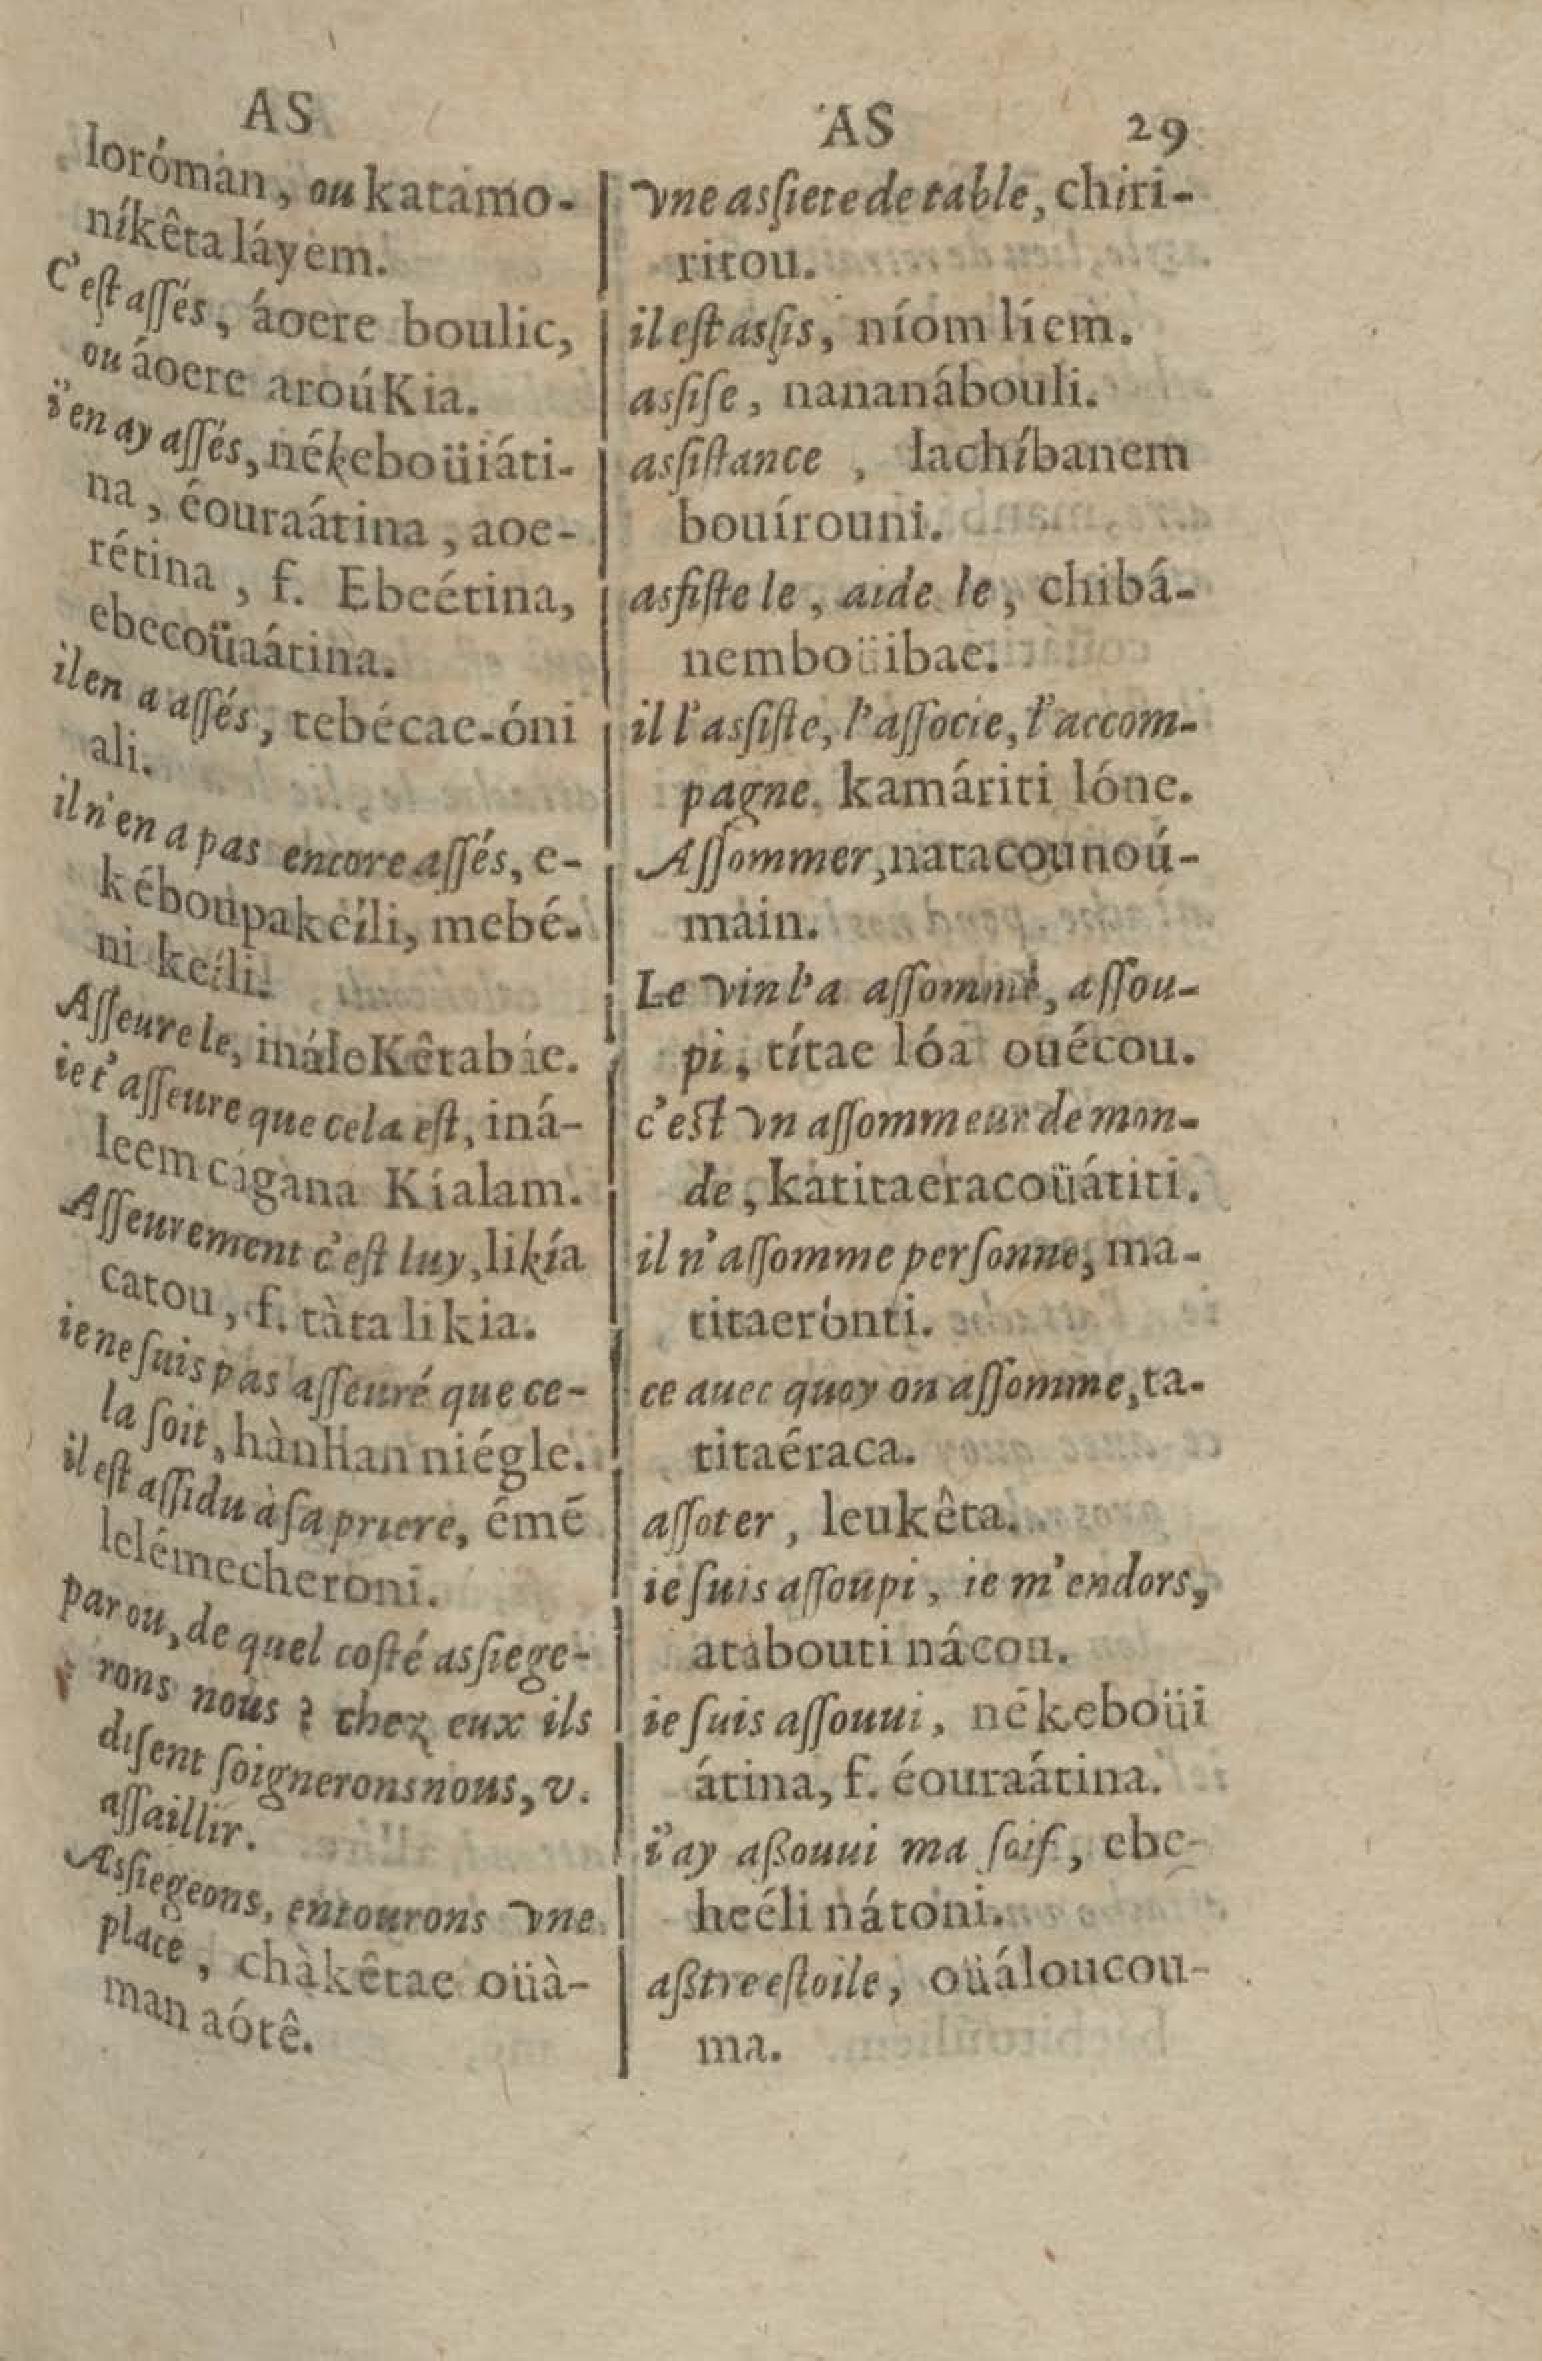 AS
loróman, ou katamo-
níkêta láyem.
C'eſt aſſés, áoere boulic,
ou áoere aroúKia.
i'en ay aſſés, nékeboüiáti-
na, éouraátina, aoe-
rétina, f. Ebeétina,
ebecoüaátina.
il en a aſſés, tebécae-óni
ali.
il n'en a pas encore aſſés, e-
kéboupakeíli, mebé-
ni keíli.
Aſſeure le, ináleKêtabáe.
ie t'aſſeure que cela eſt, iná-
leem cágana Kíalam.
Aſſeurement c'eſt luy, likía
catou, f. tàta likia.
ie ne ſuis pas aſſeuré que ce-
la ſoit, hànhan niégle.
il eſt aſſidu à ſa priere, émé
lelémecheroni.
par ou, de quel coſté asſiege-
rons nous ? chez eux ils
diſent ſoignerons nous, v.
aſſaillir.
Asſiegeons, entourons vne
place, chàkêtae oüà-
man aótê.
AS 29
vne asſiete de table, chiri-
ritou.
il eſt asſis, níom líem.
asſiſe, nananábouli.
asſiſtance, lachíbanem
bouírouni.
asſiſte le, aide le, chibá-
nemboüibae.
il l'asſiſte, l'aſſocie, l'accom-
pagne, kamáriti lóne.
Aſſommer, natacounoú-
main.
Le vin l'a aſſommé, aſſou-
pi, títae lóa ouécou.
c'eſt vn aſſommeur de mon-
de, katitaeracoüátiti.
il n'aſſomme perſonne, ma-
titaerónti.
ce auec quoy on aſſomme, ta-
titaéraca.
aſſoter, leukêta.
ie ſuis aſſoupi, ie m'endors,
atabouti nácou.
ie ſuis aſſouui, nékeboüi
átina, f. éouraátina.
i'ay aßouui ma ſoif, ebe-
heéli nátoni.
aßtre eſtoile, oüáloucou-
ma.